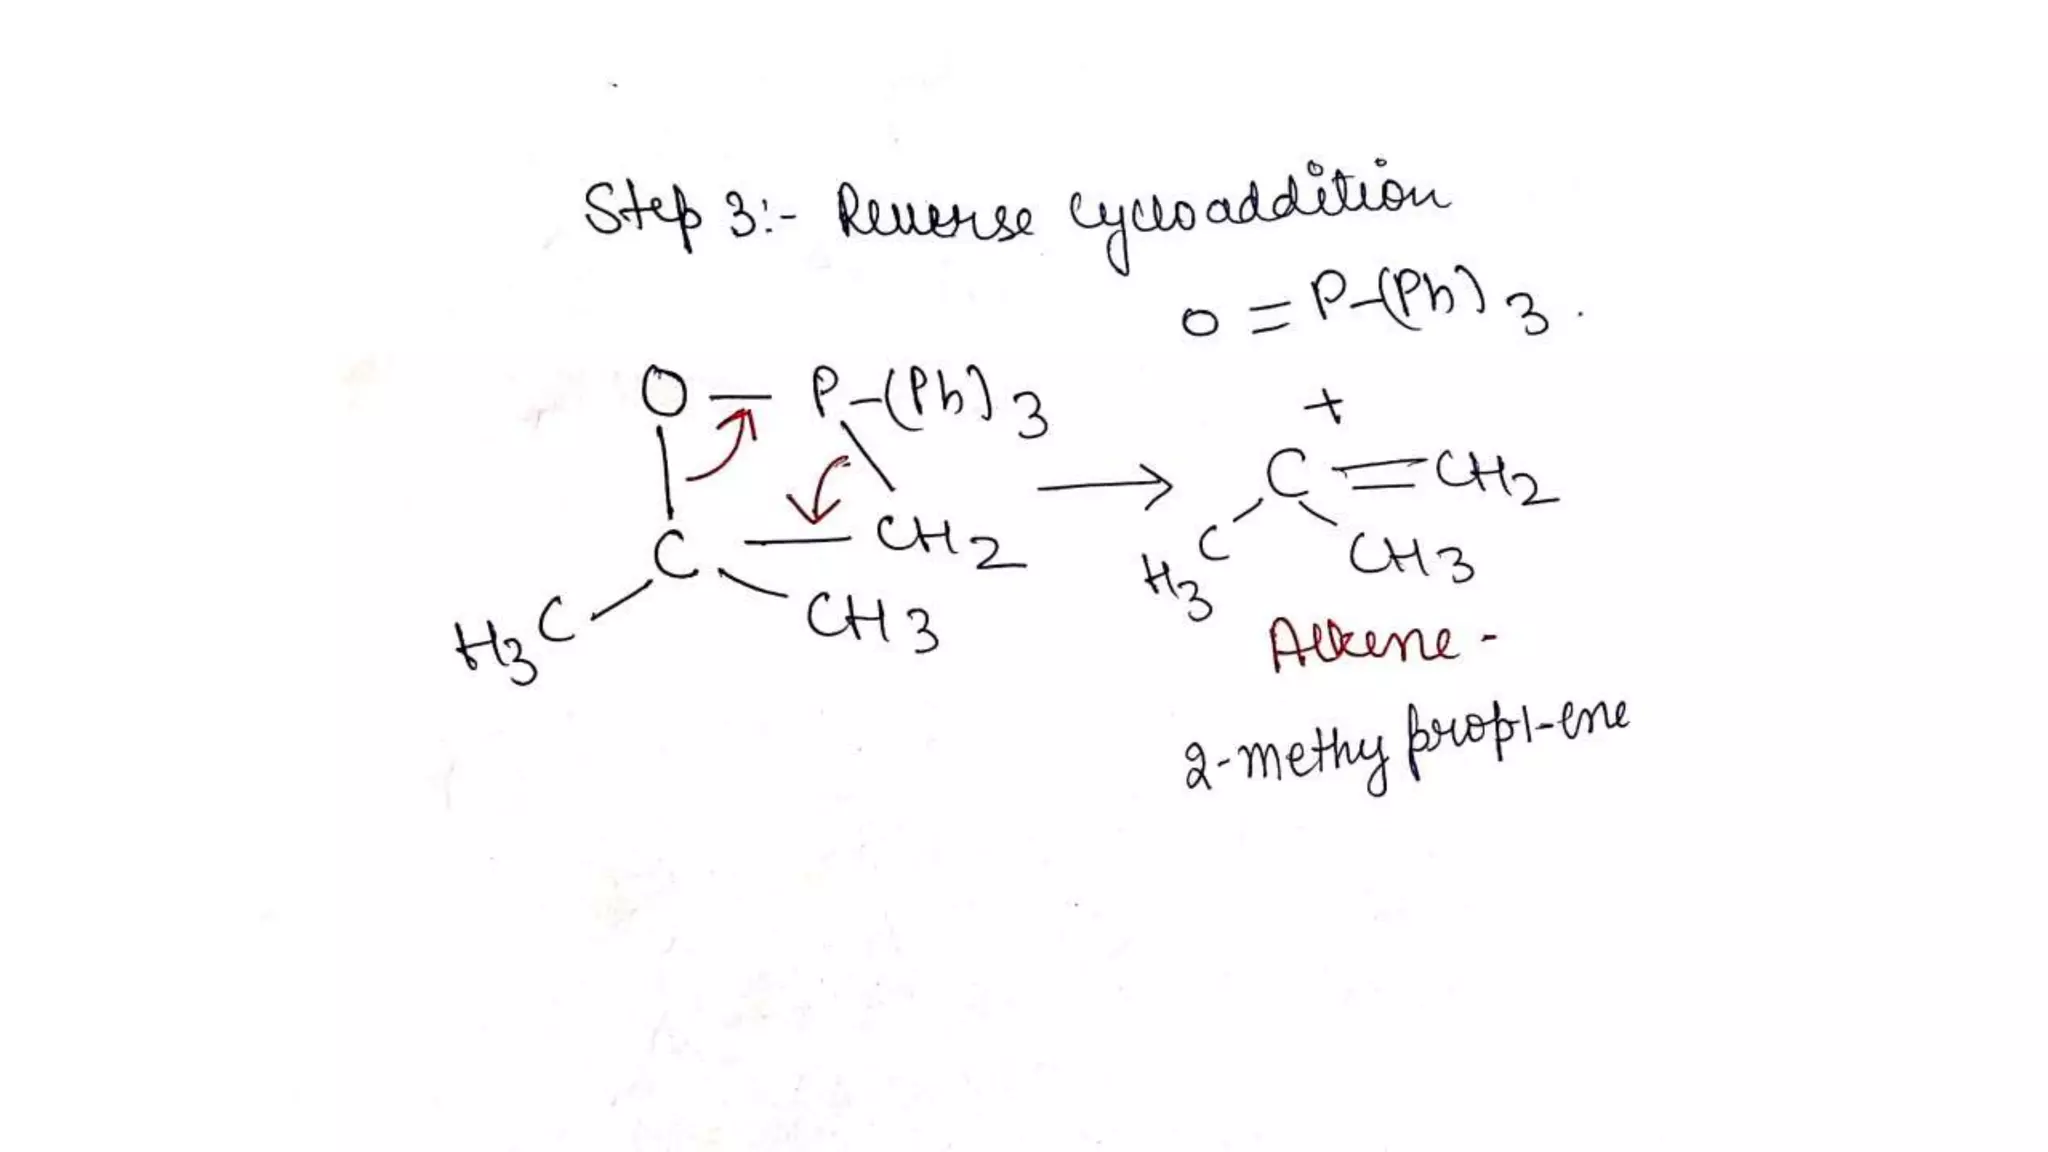 Step 3:- Reverse cycloaddition
O = P-(Ph)3.
O — P-(Ph)3
+
C = CH2
H3C CH3
C — CH2
H3C CH3
Alkene -
2-methy prop1-ene